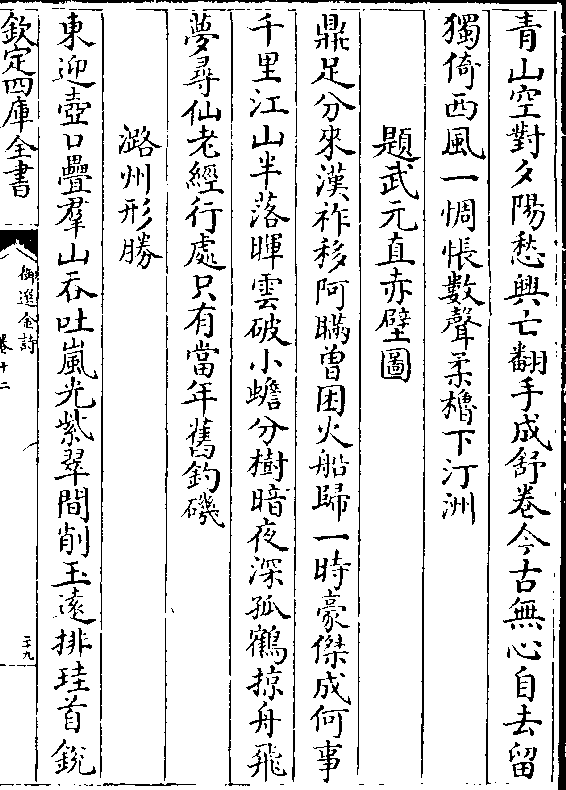 青山空對夕陽愁興亡翻手成舒卷今古無心自去留
獨倚西風一惆悵數聲柔櫓下汀洲
題武元直赤壁圖
鼎足分來漢祚移阿瞞曾困火船歸一時豪傑成何事
千里江山半落暉雲破小蟾分樹暗夜深孤鶴掠舟飛
夢尋仙老經行處只有當年舊釣磯
潞州形勝
東迎壺口疊羣山吞吐嵐光紫翠間削玉遠排珪首銳
欽定四庫全書
御選金詩
卷十二
三九